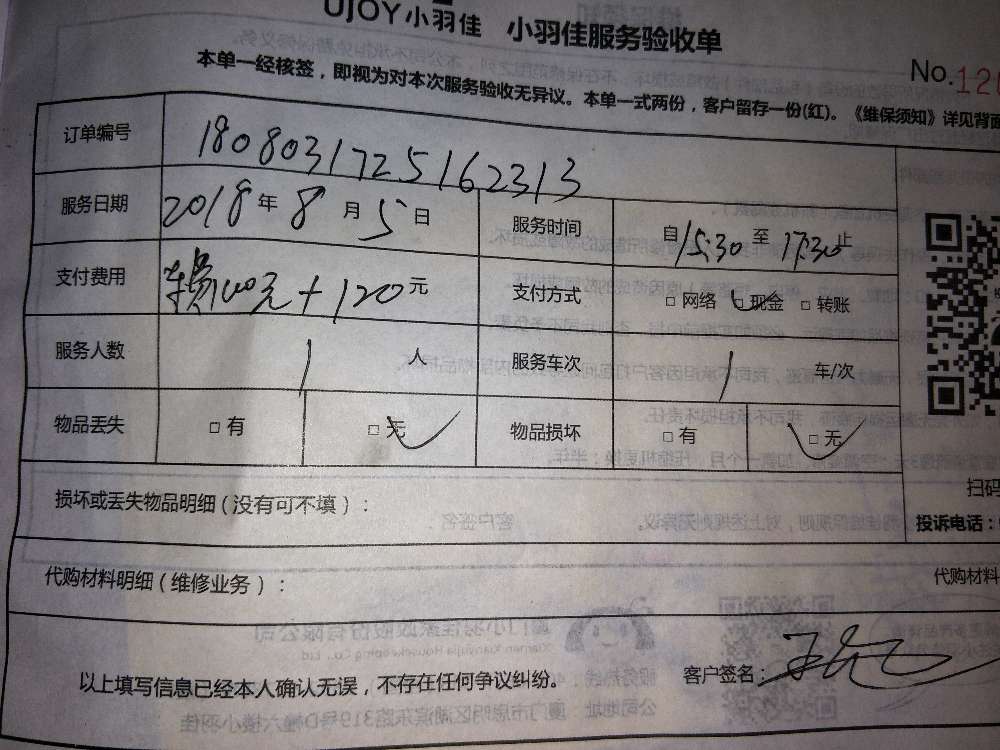 UJOY小羽佳 小羽佳服务验收单
No.120
本单一经核签，即视为对本次服务验收无异议。本单一式两份，客户留存一份(红)。《维保须知》详见背面
订单编号 1808031725162313
服务日期 2018年8月5日 服务时间 自15:30至17:30止
支付费用 100元+120元 支付方式 □网络 □现金 □转账
服务人数 1人 服务车次 1车/次
物品丢失 □有 □无 物品损坏 □有 □无
扫码
损坏或丢失物品明细（没有可不填）：
投诉电话：
代购材料明细（维修业务）：
代购材料
以上填写信息已经本人确认无误，不存在任何争议纠纷。 客户签名：